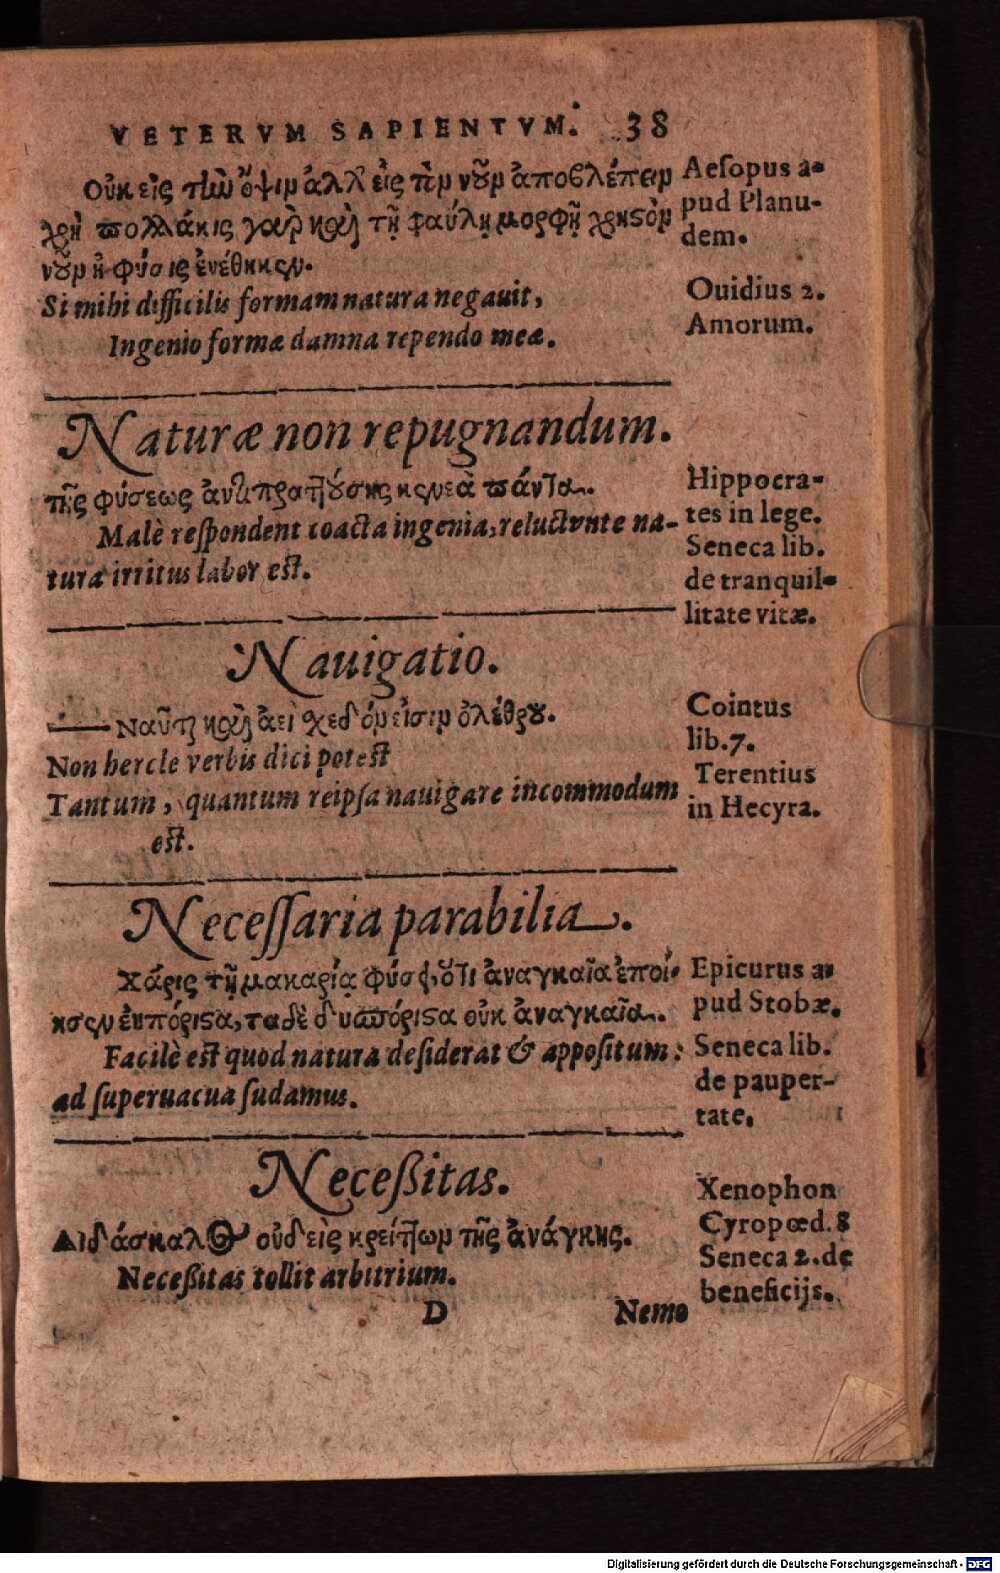 VETERVM SAPIENTVM. 38
Οὐκ εἰς τὴν ὄψιν ἀλλ' εἰς τὸν νοῦν ἀποβλέπειν
χρή πολλάκις γὰρ καὶ τῇ φαύλῃ μορφῇ χρηστὸν
νοῦν ἡ φύσις ἐνέθηκεν.
Aeſopus a-
pud Planu-
dem.
Si mihi difficilis formam natura negauit,
Ingenio formæ damna rependo meæ.
Ouidius 2.
Amorum.
Naturæ non repugnandum.
τῆς φύσεως ἀντιπρατ]ούσης κενεὰ πάντα.
Malè reſpondent coacta ingenia, reluctvnte na-
tura irritus labor est.
Hippocra-
tes in lege.
Seneca lib.
de tranquil-
litate vitæ.
Nauigatio.
Ναῦται καὶ αἰεὶ σχεδόν εἰσιν ὀλέθρου.
Non hercle verbis dici potest
Tantum, quantum reipſa nauigare incommodum
est.
Cointus
lib. 7.
Terentius
in Hecyra.
Neceſſaria parabilia.
Χάρις τῇ μακαρίᾳ φύσει, ὅτι ἀναγκαῖα ἐποί-
ησεν ἐυπόριστα, τὰ δὲ δυσπόριστα οὐκ ἀναγκαῖα.
Facilè est quod natura deſiderat & appoſitum:
ad ſuperuacua ſudamus.
Epicurus a-
pud Stobæ.
Seneca lib.
de pauper-
tate.
Neceßitas.
Διδάσκαλος οὐδεὶς κρείτ]ων τῆς ἀνάγκης.
Neceßitas tollit arbitrium.
Xenophon
Cyropœd. 8
Seneca 2. de
beneficijs.
D Nemo
Digitalisierung gefördert durch die Deutsche Forschungsgemeinschaft - DFG